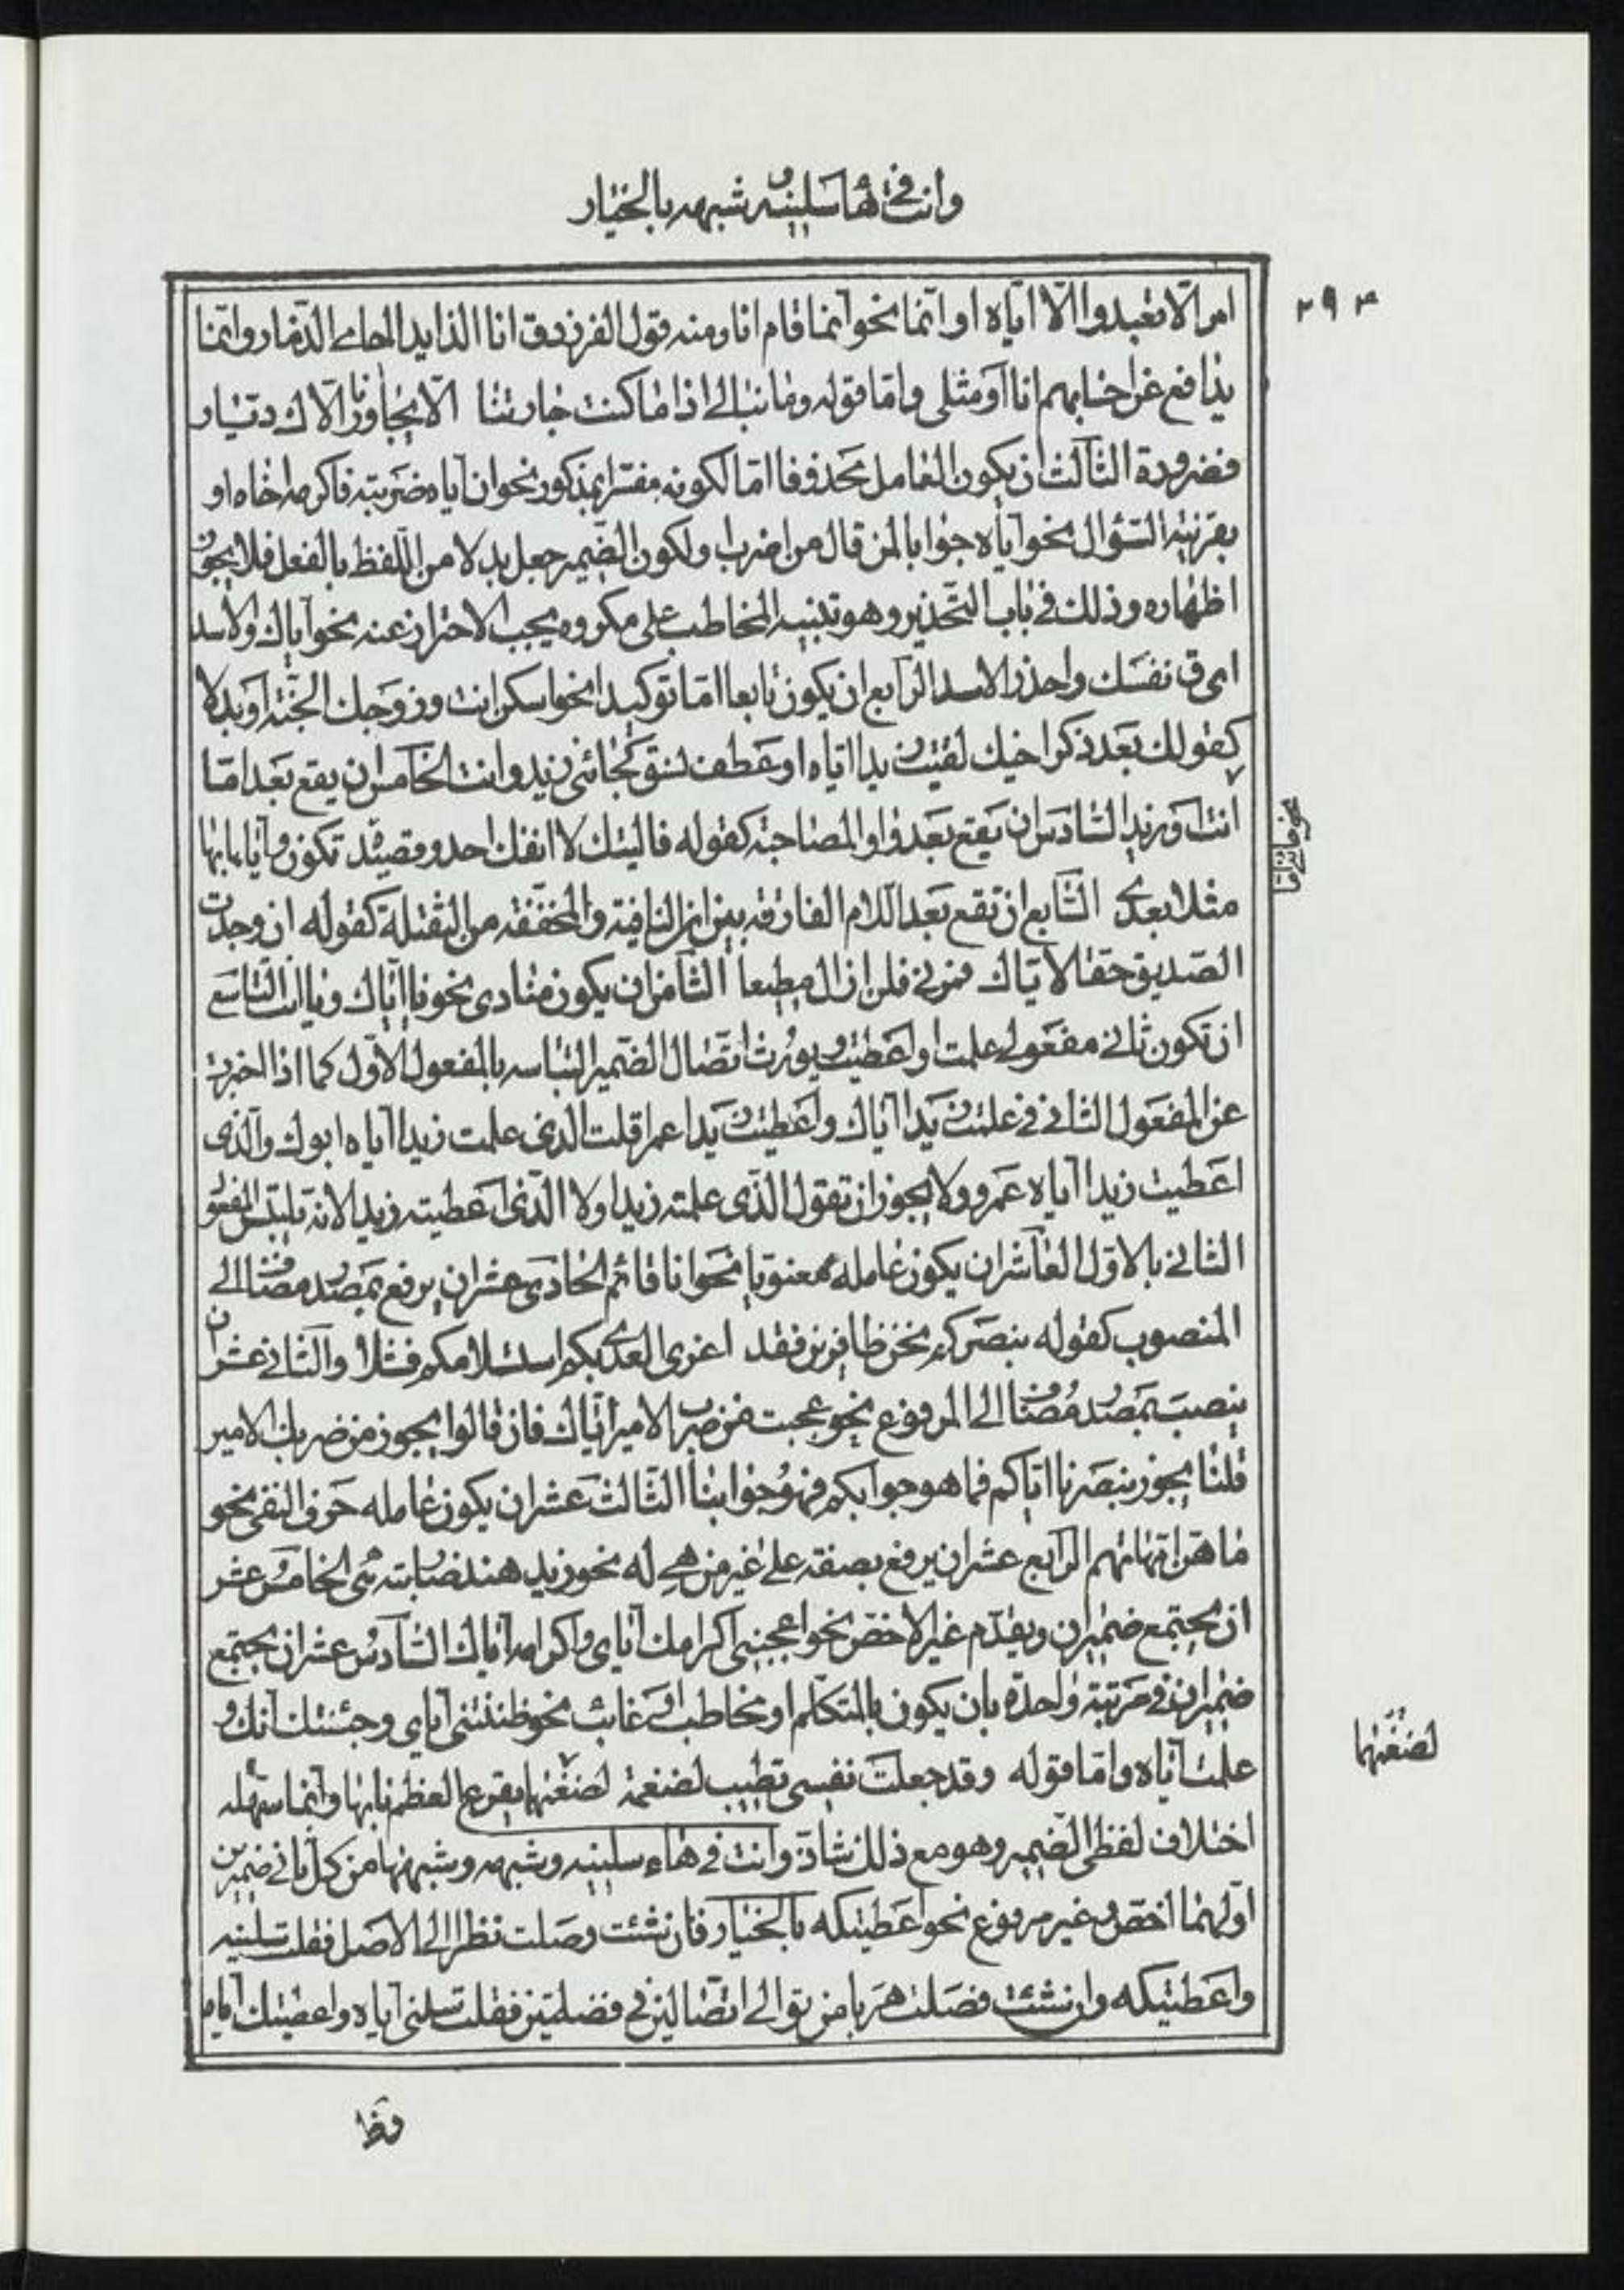 وانت في هاء سلنيه وشبهه بالخيار
٢٩٣
امر الّا تعبدوا الّا ايّاه او انّما نحو انما قام انا ومنه قول الفرزدق انا الذايد الحامي الذّمار وانّما
يدافع عن احسابهم انا او مثلي وامّا قوله وما نبالي اذا ما كنت جارتنا الّا يجاورنا الّاك ديّار
فضرورة الثالث ان يكون العامل محذوفا امّا لكونه مفسّرا بمذكور نحو ان اياه ضربته فاكرمه اخاه او
بقرنية السّؤال نحو آياه جوابا لمن قال من اضرب او لكون الضّمير جعل بدلا من اللّفظ بالفعل فلا يجوز
اظهاره وذلك في باب التّحذير وهو تنبيه المخاطب على مكروه يجب الاحتراز عنه نحو آياك والاسد
اى ق نفسك واحذر الاسد الرّابع ان يكون تابعا امّا توكيدا نحو اسكن انت وزوجك الجنّة او بدلا
كقولك بعد ذكر اخيك لقيت زيدا ايّاه او عطف نسق كجائني زيد وانت الخامس ان يقع بعد امّا
نحو قام امّا
انت او زيد السّادس ان يقع بعد واو المصاحبة كقوله فاليتك لا انفك احدو قصيدة تكون وآياها بها
مثلا بعدى السّابع ان تقع بعد اللّام الفارقة بين ان النافية والمخفّفة من الثقيلة كقوله ان وجدت
الصّديق حقا لايّاك فمرني فلن ازال مطيعا الثّامن ان يكون منادى نحو يا ايّاك ويا انت التّاسع
ان تكون ثاني مفعولى علمت او اعطيت ويورث اتّصال الضّمير التباسه بالمفعول الاوّل كما اذا اخبرت
عن المفعول الثاني في علمت زيدا آياك واعطيت زيدا عمرا قلت الذي علمت زيدا آياه ابوك والّذى
اعطيت زيدا آياه عمرو ولا يجوز ان تقول الذّى علمته زيدا ولا الّذى اعطيته زيدا لانه يلتبس المفعول
الثاني بالاوّل العاشر ان يكون عامله معنويا نحو انا قائم الحادى عشر ان يرفع بمصدر مضاف الى
المنصوب كقوله بنصركم نحن ظافرين فقد اغرى العدى بكم استسلامكم فشلا والثاني عشر ان
ينصب بمصدر مضاف الى المرفوع نحو عجبت من ضرب الامير ايّاك فان قالوا يجوز من ضربك الامير
قلنا يجوز بنصرنا ايّاكم فما هو جوابكم فهو جوابنا الثّالث عشر ان يكون عامله حرف النفى نحو
ما هنّ امّهاتهم الرّابع عشر ان يرفع بصفة على غير من هي له نحو زيد هند ضاربته هي الخامس عشر
ان يجتمع ضميران ويقدّم غير الاخصّ نحو اعجبنى اكرامك آياى واكرامه آياك السّادس عشر ان يجتمع
ضميران في مرتبة واحدة بان يكون بالمتكلّم او مخاطب او غائب نحو ظننتنى آياى وحسبتك آنك و
علمته آياه وامّا قوله وقد جعلت نفسي تطيب لضغمة لضغمهما يقرع العظم نابها وانّما سهّله
لضغمهما
اختلاف لفظى الضّمير وهو مع ذلك شاذّ وانت في هاء سلنيه وشبهه وشبهها من كلّ ثاني ضميرين
اوّلهما اخصّ وغير مرفوع نحو اعطيتكه بالخيار فان شئت وصلت نظرا الى الاصل فقلت سلنيه
واعطيتكه وان شئت فصلت هربا من توالي اتّصالين في فضلتين فقلت سلنى آياه واعطيتك آياه